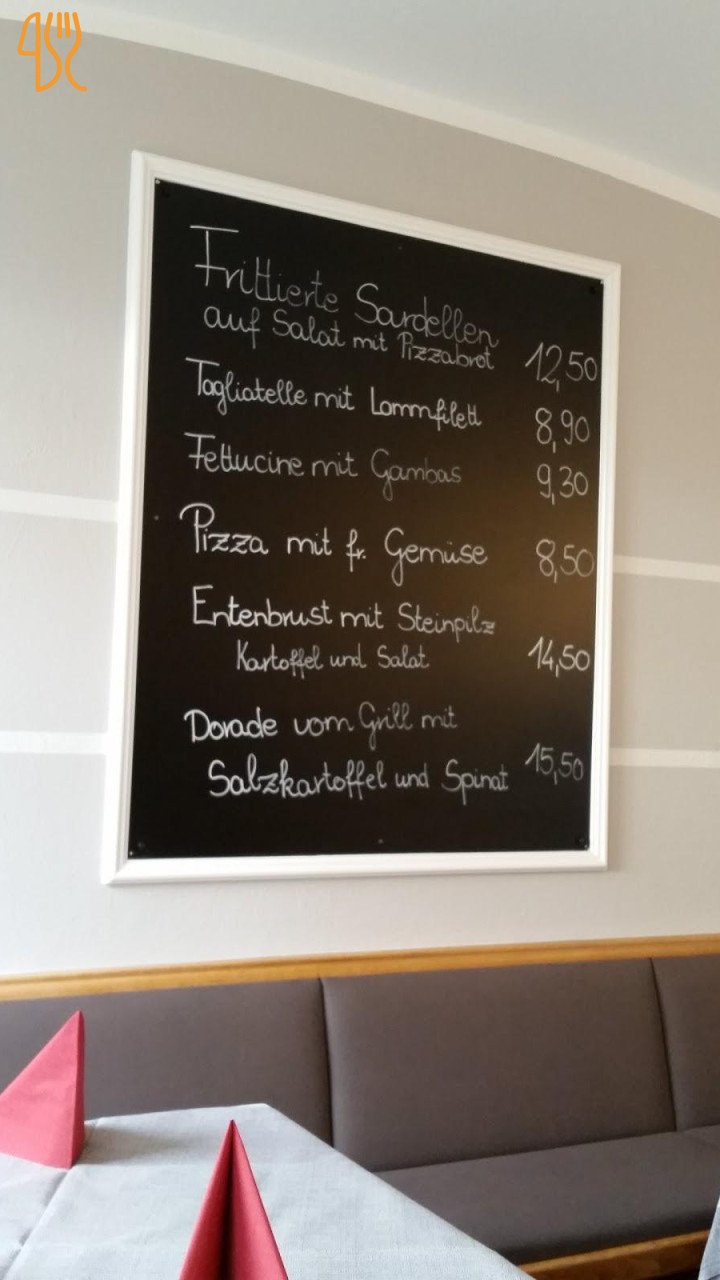 Frittierte Sardellen
auf Salat mit Pizzabrot 12,50
Tagliatelle mit Lammfilett 8,90
Fettucine mit Gambas 9,30
Pizza mit fr. Gemüse 8,50
Entenbrust mit Steinpilz
Kartoffel und Salat 14,50
Dorade vom Grill mit
Salzkartoffel und Spinat 15,50